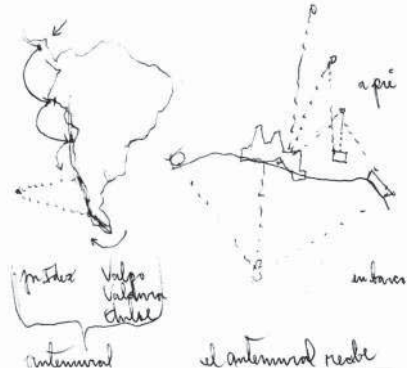 a pié
jn Fdez
Valpo
Valdivia
Chiloé
en barco
antemural
el antemural recibe